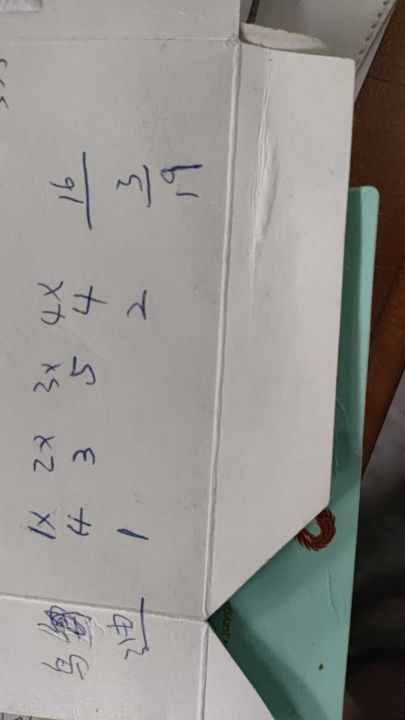 1X 2X 3X 4X
乌 4 3 5 4 16
油 1 2 3
19